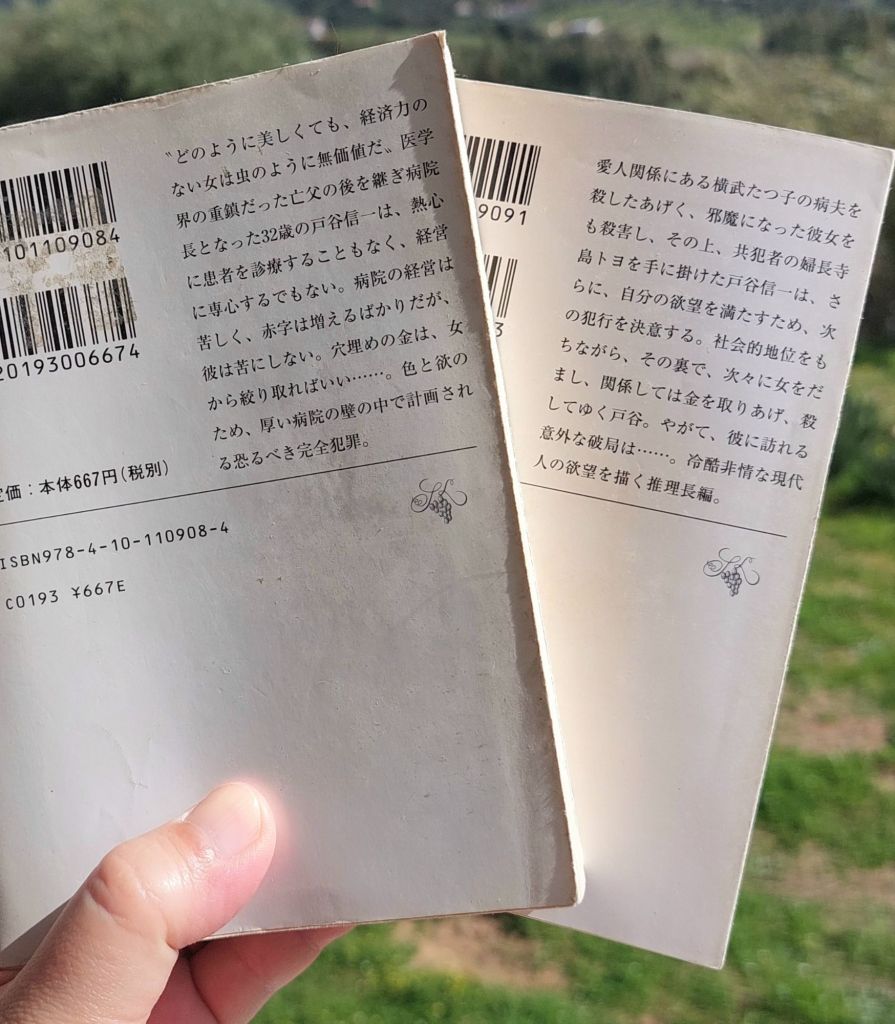 〝どのように美しくても、経済力の
ない女は虫のように無価値だ〟医学
界の重鎮だった亡父の後を継ぎ病院
長となった32歳の戸谷信一は、熱心
に患者を診療することもなく、経営
に専心するでもない。病院の経営は
苦しく、赤字は増えるばかりだが、
彼は苦にしない。穴埋めの金は、女
から絞り取ればいい……。色と欲の
ため、厚い病院の壁の中で計画され
る恐るべき完全犯罪。
101109084
20193006674
定価：本体667円(税別)
ISBN978-4-10-110908-4
C0193 ¥667E
愛人関係にある横武たつ子の病夫を
殺したあげく、邪魔になった彼女を
も殺害し、その上、共犯者の婦長寺
島トヨを手に掛けた戸谷信一は、さ
らに、自分の欲望を満たすため、次
の犯行を決意する。社会的地位をも
ちながら、その裏で、次々に女をだ
まし、関係しては金を取りあげ、殺
してゆく戸谷。やがて、彼に訪れる
意外な破局は……。冷酷非情な現代
人の欲望を描く推理長編。
9091
3